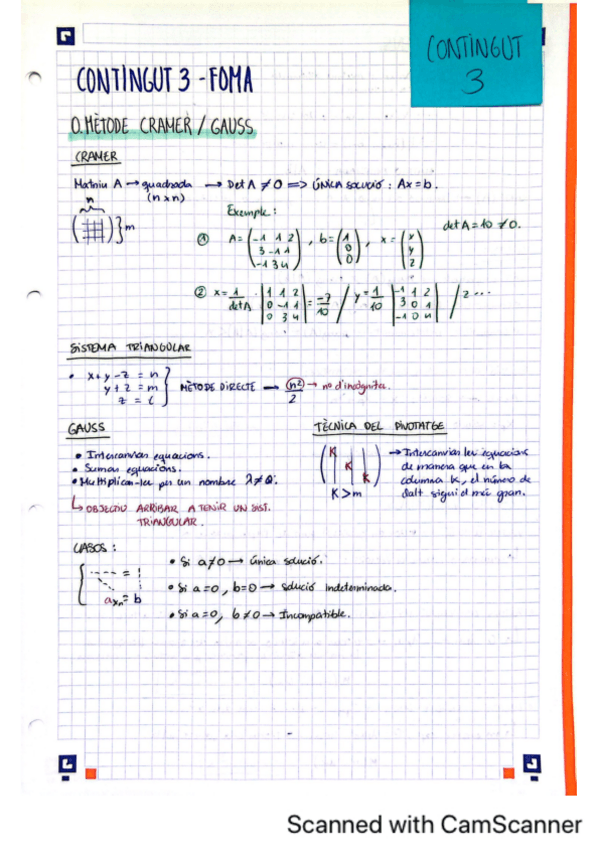 CONTINGUT
3
CONTINGUT 3 - FOMA
0. MÈTODE CRAMER / GAUSS
CRAMER
Matriu A → quadrada → Det A ≠ 0 => ÚNICA solució : Ax = b.
(n x n)
n
m
Exemple :
det A = 10 ≠ 0.
① A = (-1 1 2 / 3 -1 1 / -1 3 4) , b = (1 / 0 / 0) , x = (x / y / z)
② x = 1/detA · |1 1 2 / 0 -1 1 / 0 3 4| = -7/10 / y = 1/10 |-1 1 2 / 3 0 1 / -1 0 4| / z ...
SISTEMA TRIANGULAR
• x + y - z = n
y + z = m
z = l
MÈTODE DIRECTE → n²/2 → nº d'incògnites.
GAUSS
• Intercanviar equacions.
• Sumar equacions.
• Multiplicar-les per un nombre λ ≠ 0.
↳ OBJECTIU ARRIBAR A TENIR UN SIST.
TRIANGULAR.
TÈCNICA DEL PIVOTATGE
K
K
K
K > m
→ Intercanviar les equacions
de manera que en la
columna K, el número de
dalt sigui el més gran.
CASOS :
--- = 1
axn = b
• Si a ≠ 0 → única solució.
• Si a = 0, b = 0 → Solució indeterminada.
• Si a = 0, b ≠ 0 → Incompatible.
Scanned with CamScanner